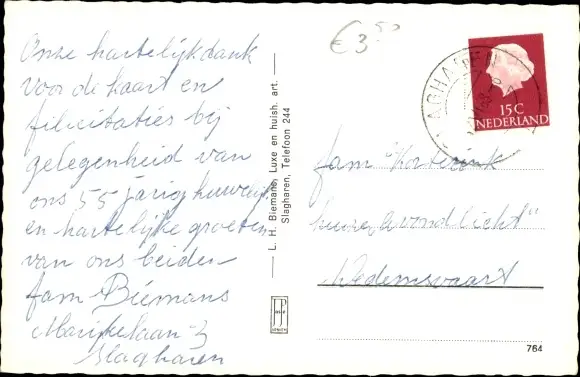 Onze hartelijk dank
voor de kaart en
felicitaties bij
gelegenheid van
ons 55 jarig huwelijk
en hartelijke groeten
van ons beiden
fam Biemans
Marijkelaan 3
Slagharen
€ 3.50
L. H. Biemans, Luxe en huish. art.
Slagharen, Telefoon 244
AGHAREN
15 C
NEDERLAND
fam Korterink
Avondlicht"
Dedemsvaart
764